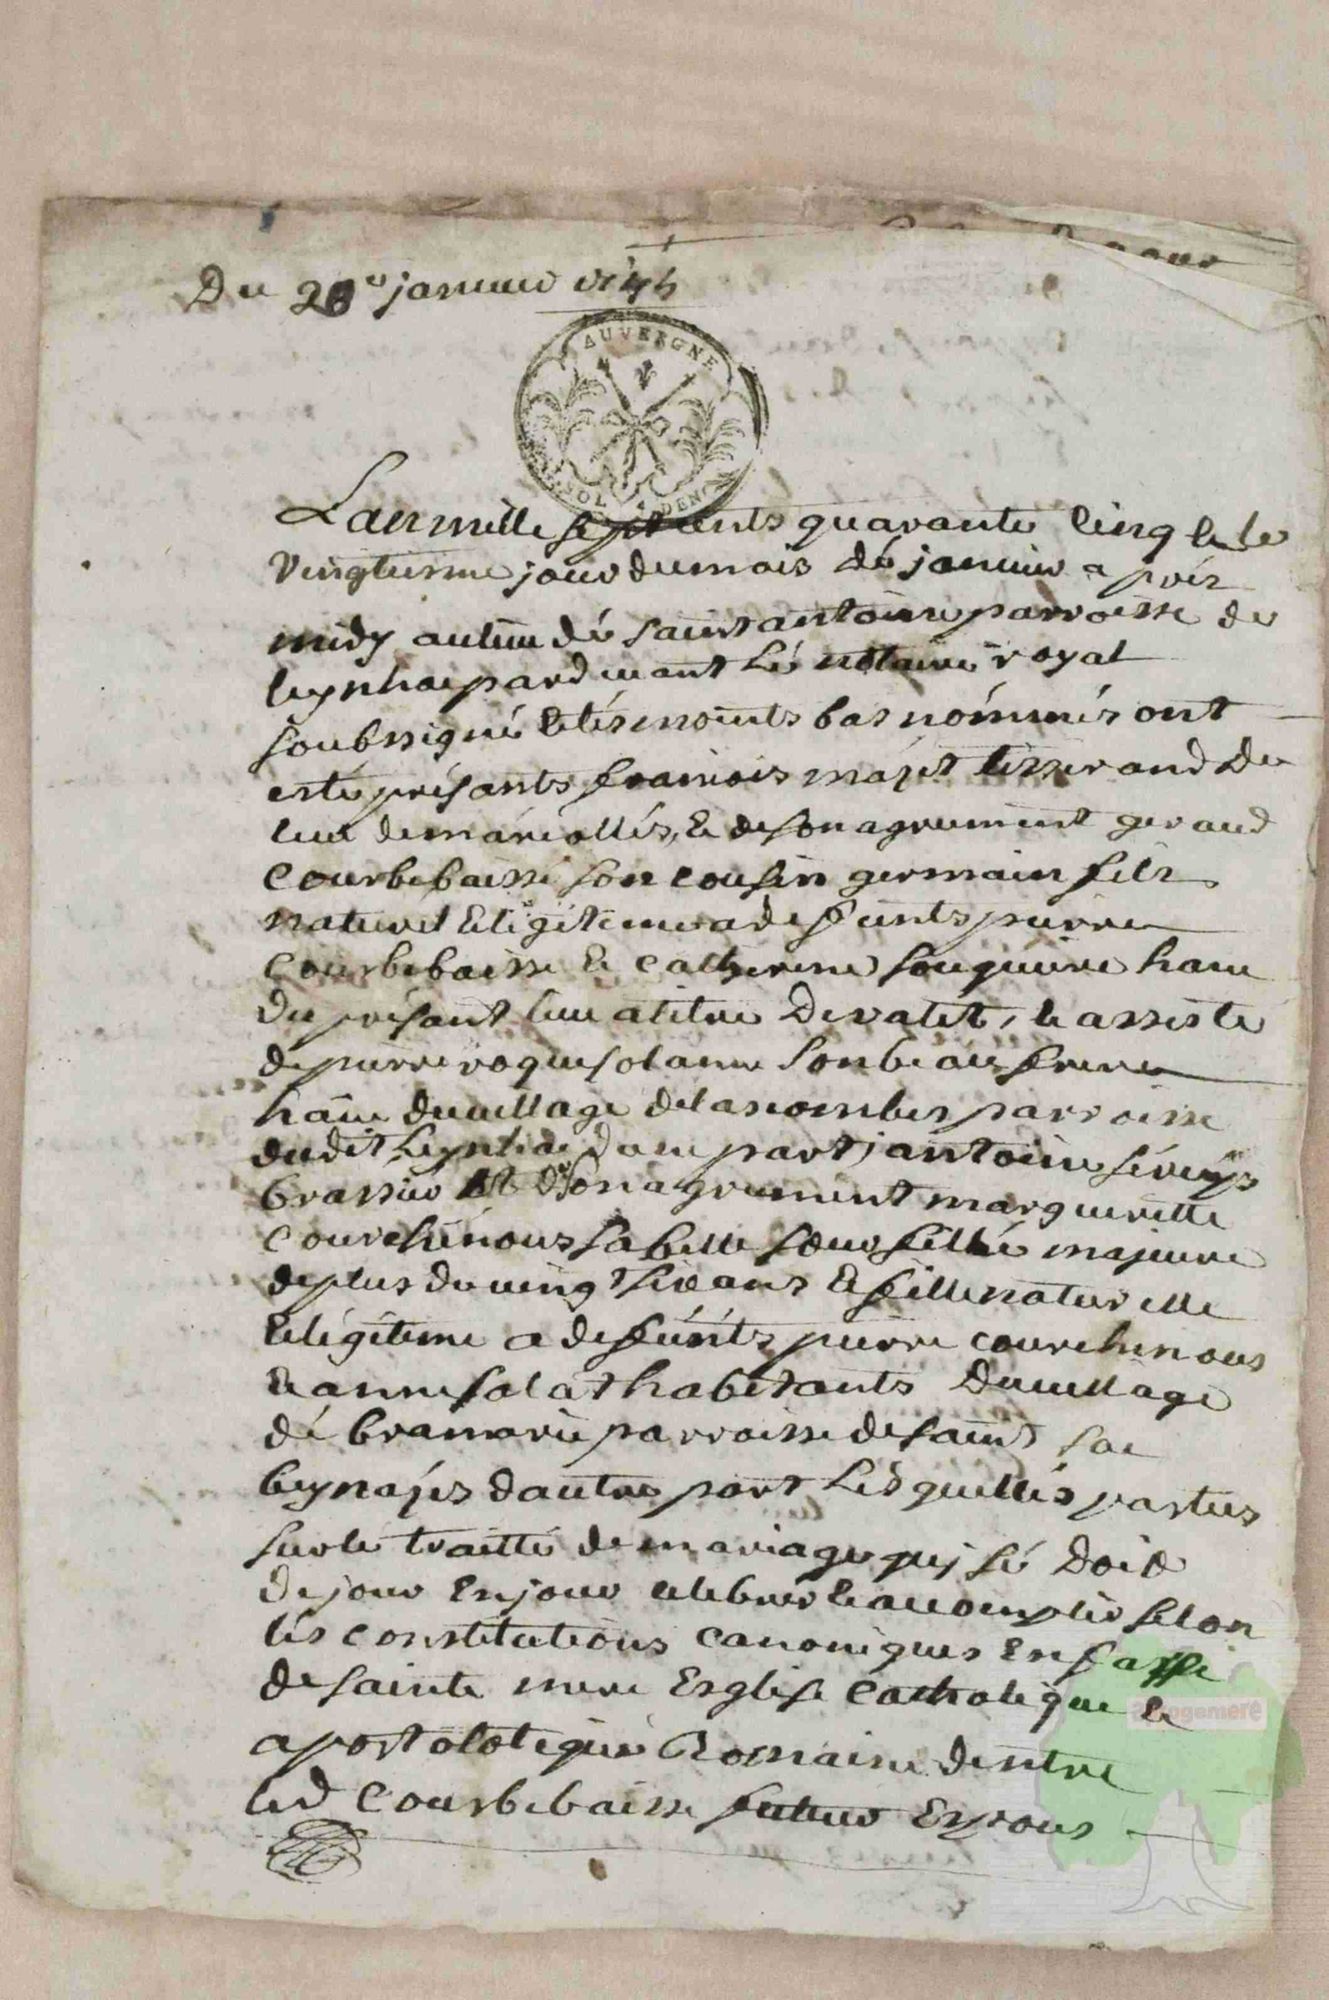 Du 20e janvier 1745
AUVERGNE
SOL
DEN
L'an mille sept cents quarante cinq & le
vingtieme jour du mois dé janvier aprés
midy au lieu dé saint antoine parroisse de
leynhac pardevant lé notaire royal
soubssigné & tésmoints bas nommés ont
esté présants francois majet tisserand du
lieu de marcollés, & de son agrement geraud
Courbebaisse son cousin germain fils
naturel & légitime a defunts pierre
Courbebaisse & Catherine souquiere hant
du présant lieu a titre de valet, & assisté
de pierre roquesolane son beau frere
hant du village de lascombes parroisse
dudit Leynhac d'une part, antoine
brassier & de son agrement margueritte
Courchinoux sa belle soeur fille majeure
de plus de vingt six ans & fille naturelle
& légitime a defunts pierre courchinous
& anne salat habitants du village
dé bramarie parroisse de saint
d'autre part Lésquellés parties
sur le traitté de mariage quy sé doit
de jour en jour celebrer & accomplir selon
lés constitutions canoniques en fasse
de sainte mere Esglise Catholique &
apostolotique Romaine d'entre
led Courbebaisse futur Espous
geromere